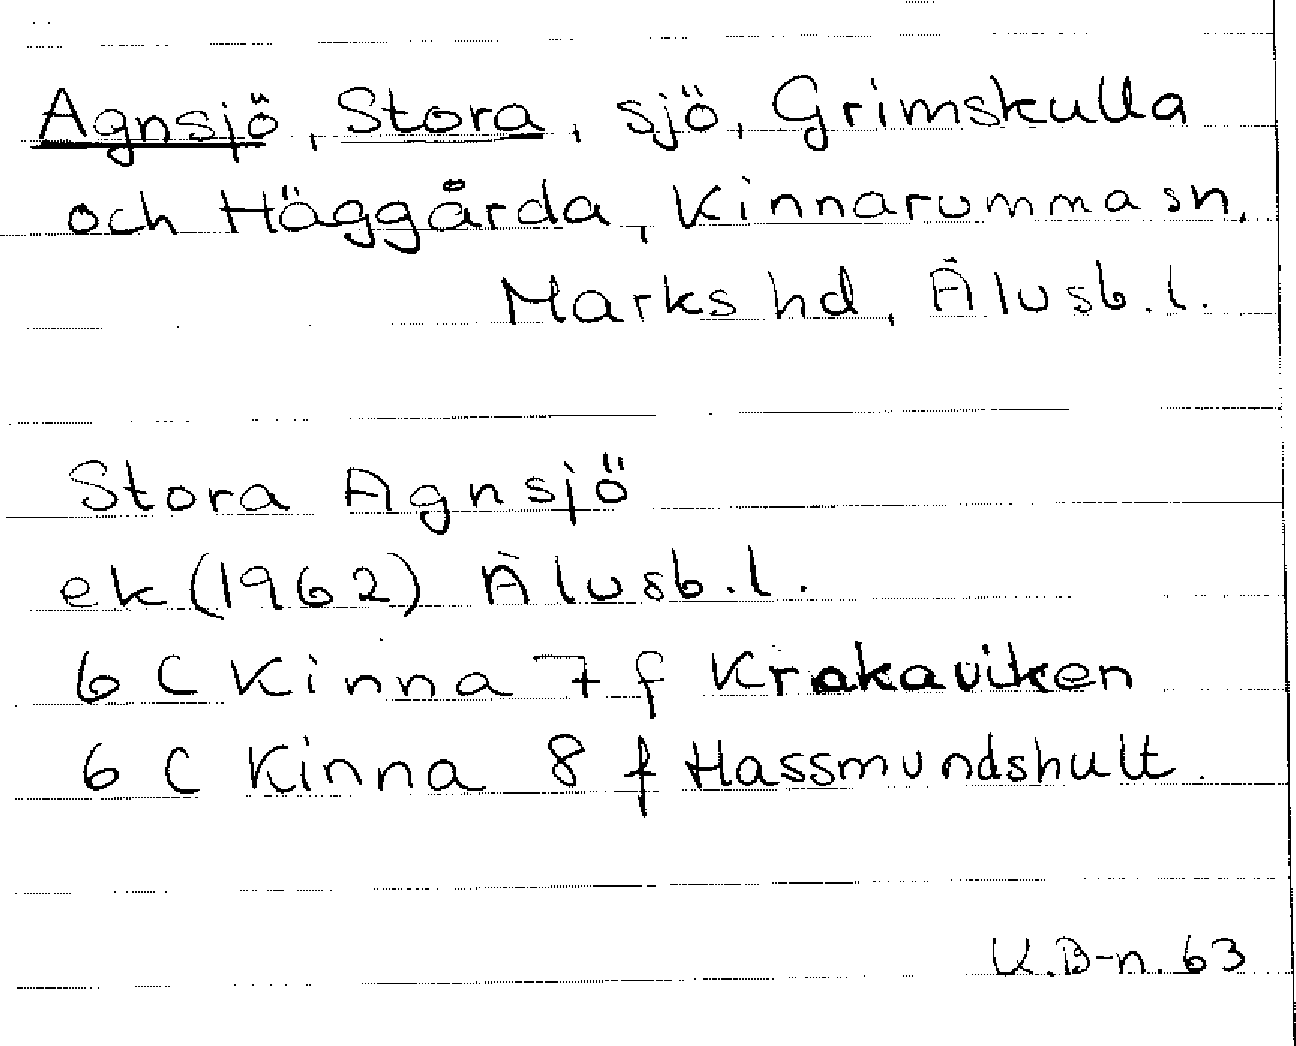 Agnsjö, Stora, sjö, Grimskulla
och Häggårda, Kinnarumma sn,
Marks hd, Älvsb.l.
Stora Agnsjö
ek (1962) Älvsb.l.
6 C Kinna 7 f Krakaviken
6 C Kinna 8 f Hassmundshult
K.B-n. 63